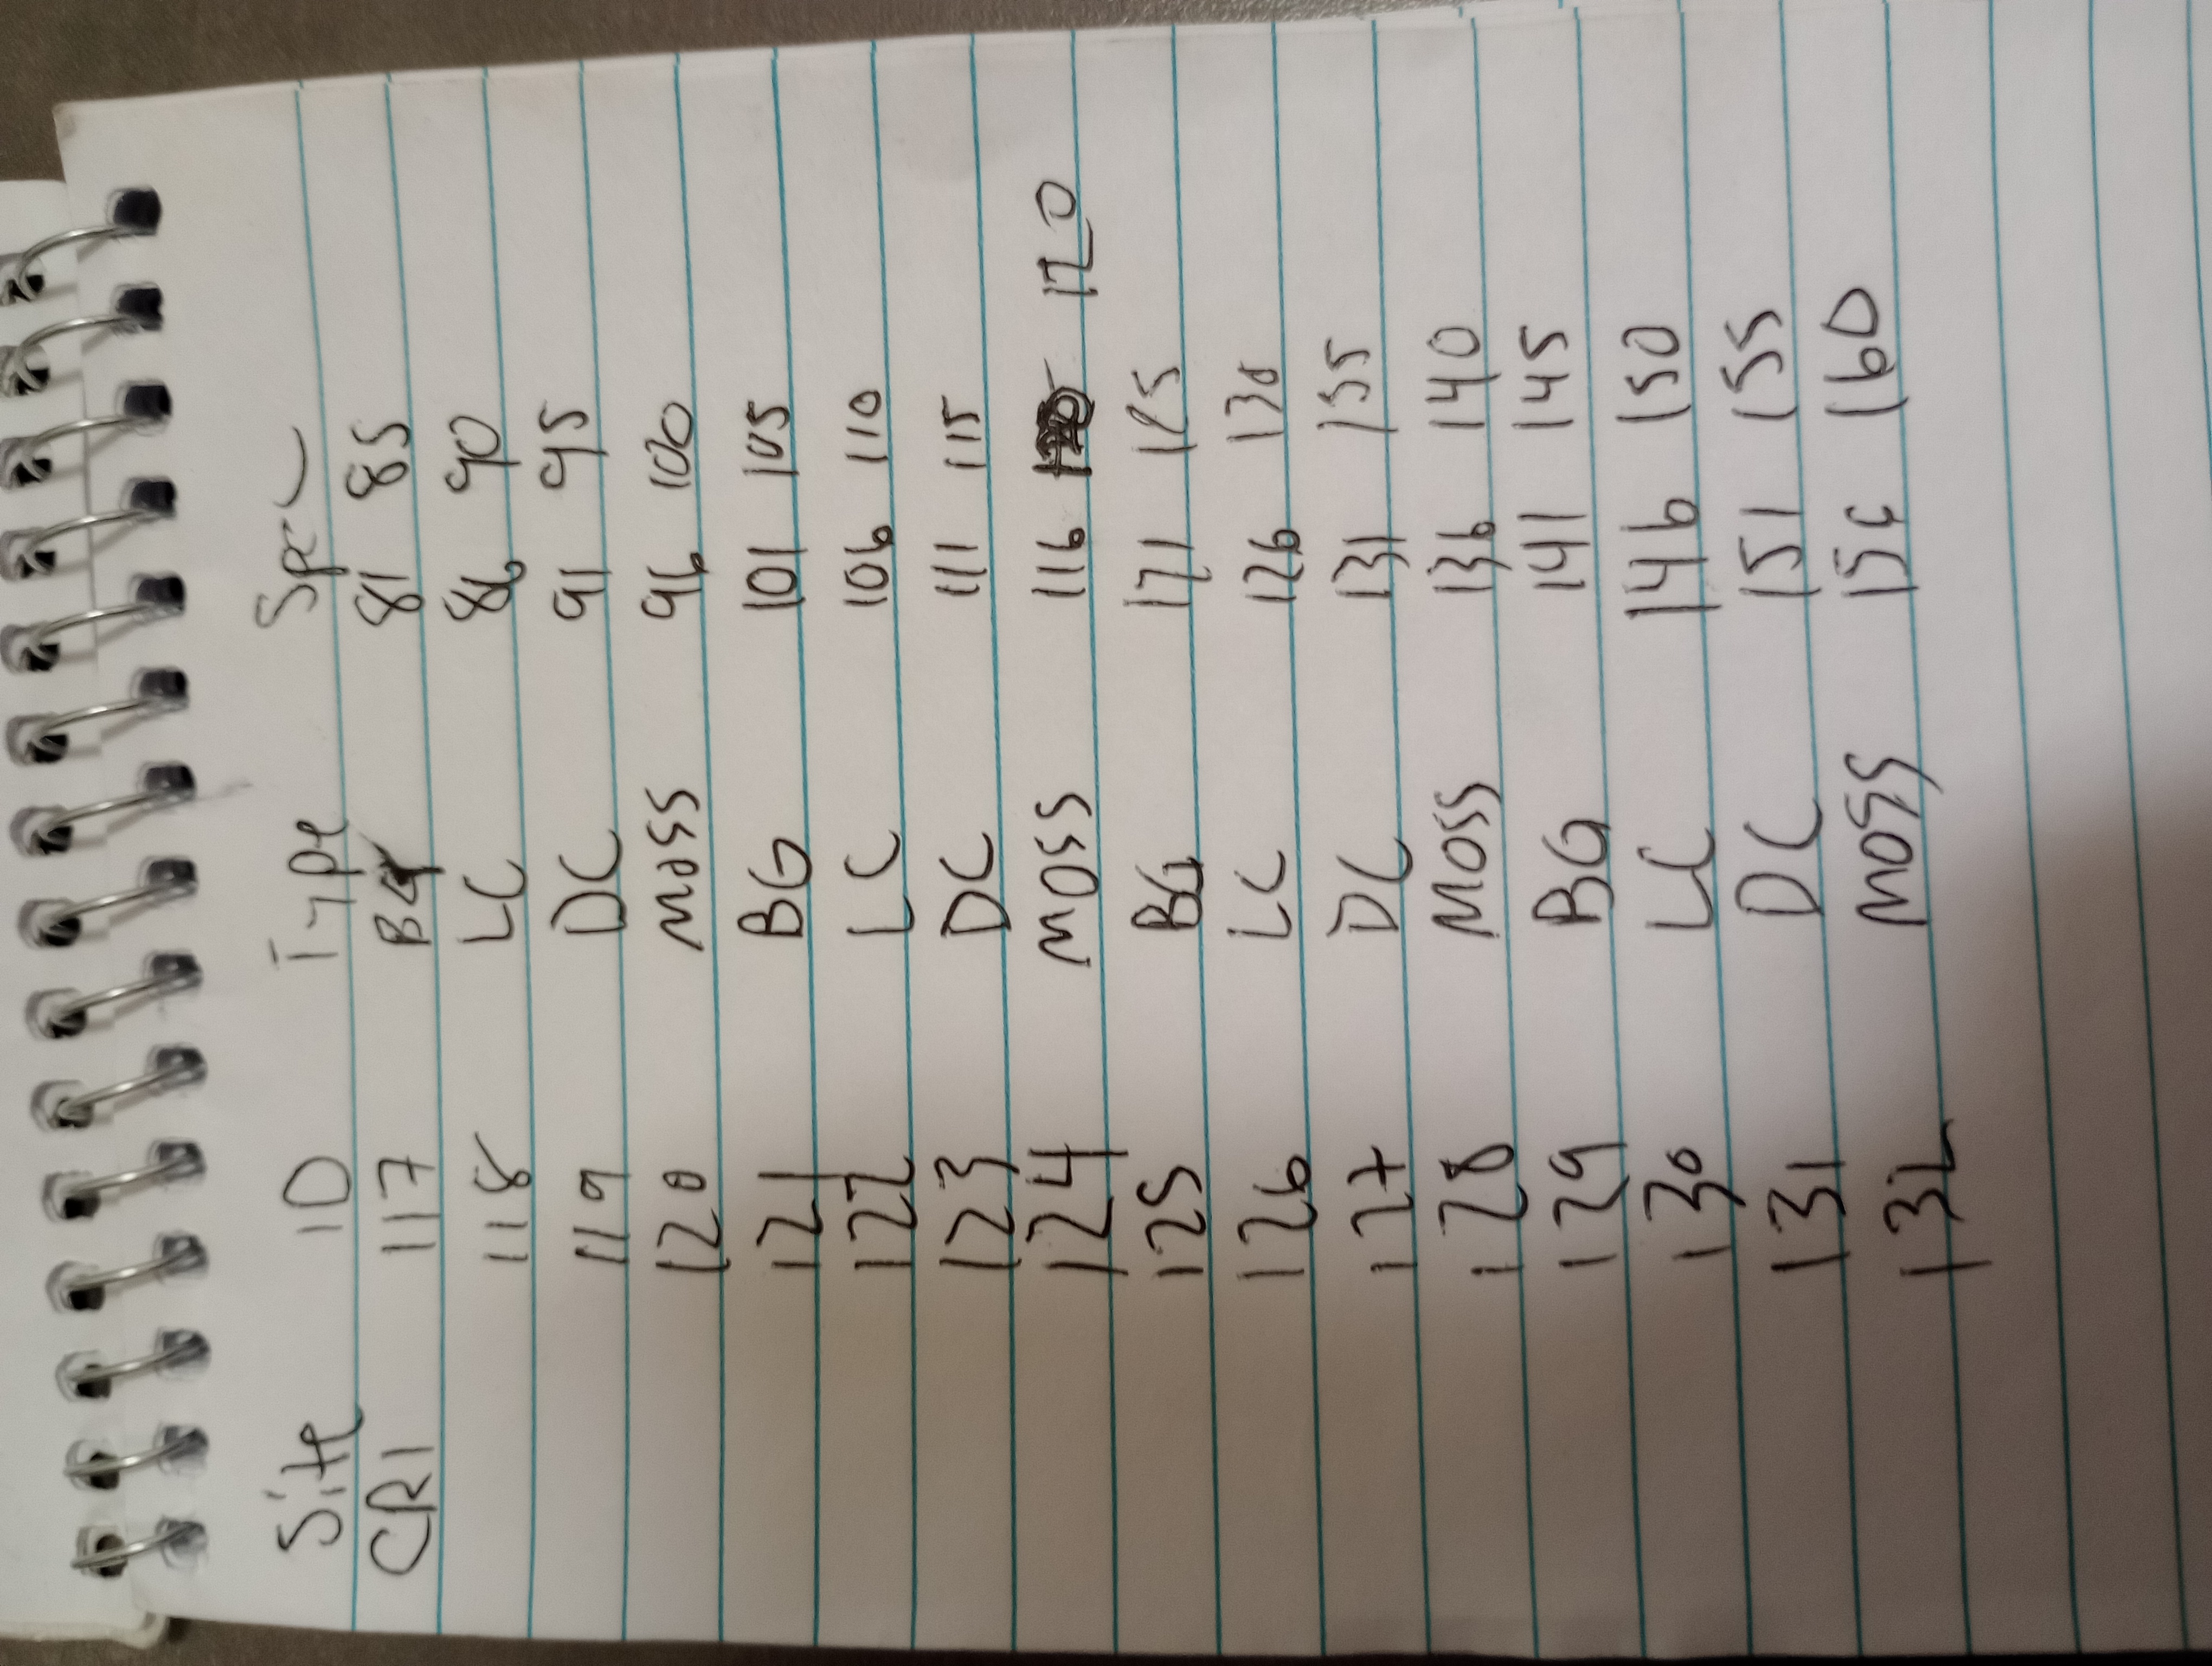 Site ID Type Spec
CR1 117 BG 81 85
118 LC 86 90
119 DC 91 95
120 MOSS 96 100
121 BG 101 105
122 LC 106 110
123 DC 111 115
124 MOSS 116 120
125 BG 121 125
126 LC 126 130
127 DC 131 135
128 MOSS 136 140
129 BG 141 145
130 LC 146 150
131 DC 151 155
132 MOSS 156 160